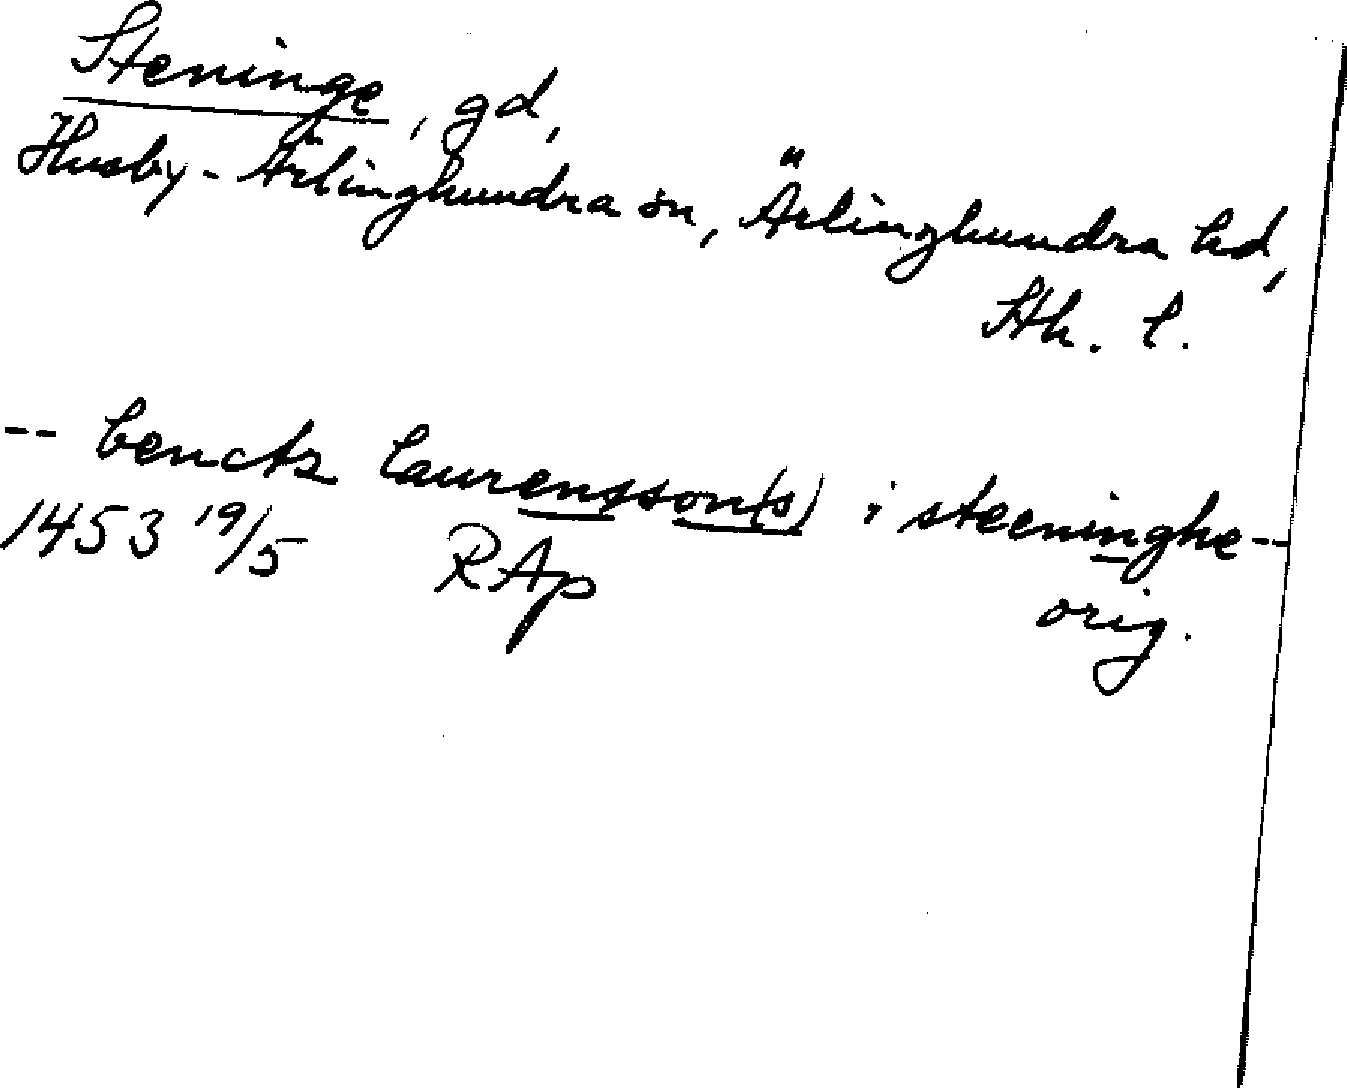 Steninge, gd,
Husby-Ärlinghundra sn, Ärlinghundra hd,
Sth. l.
-- bencts laurensson(s) i steeninghe --
1453 19/5 RAp orig.